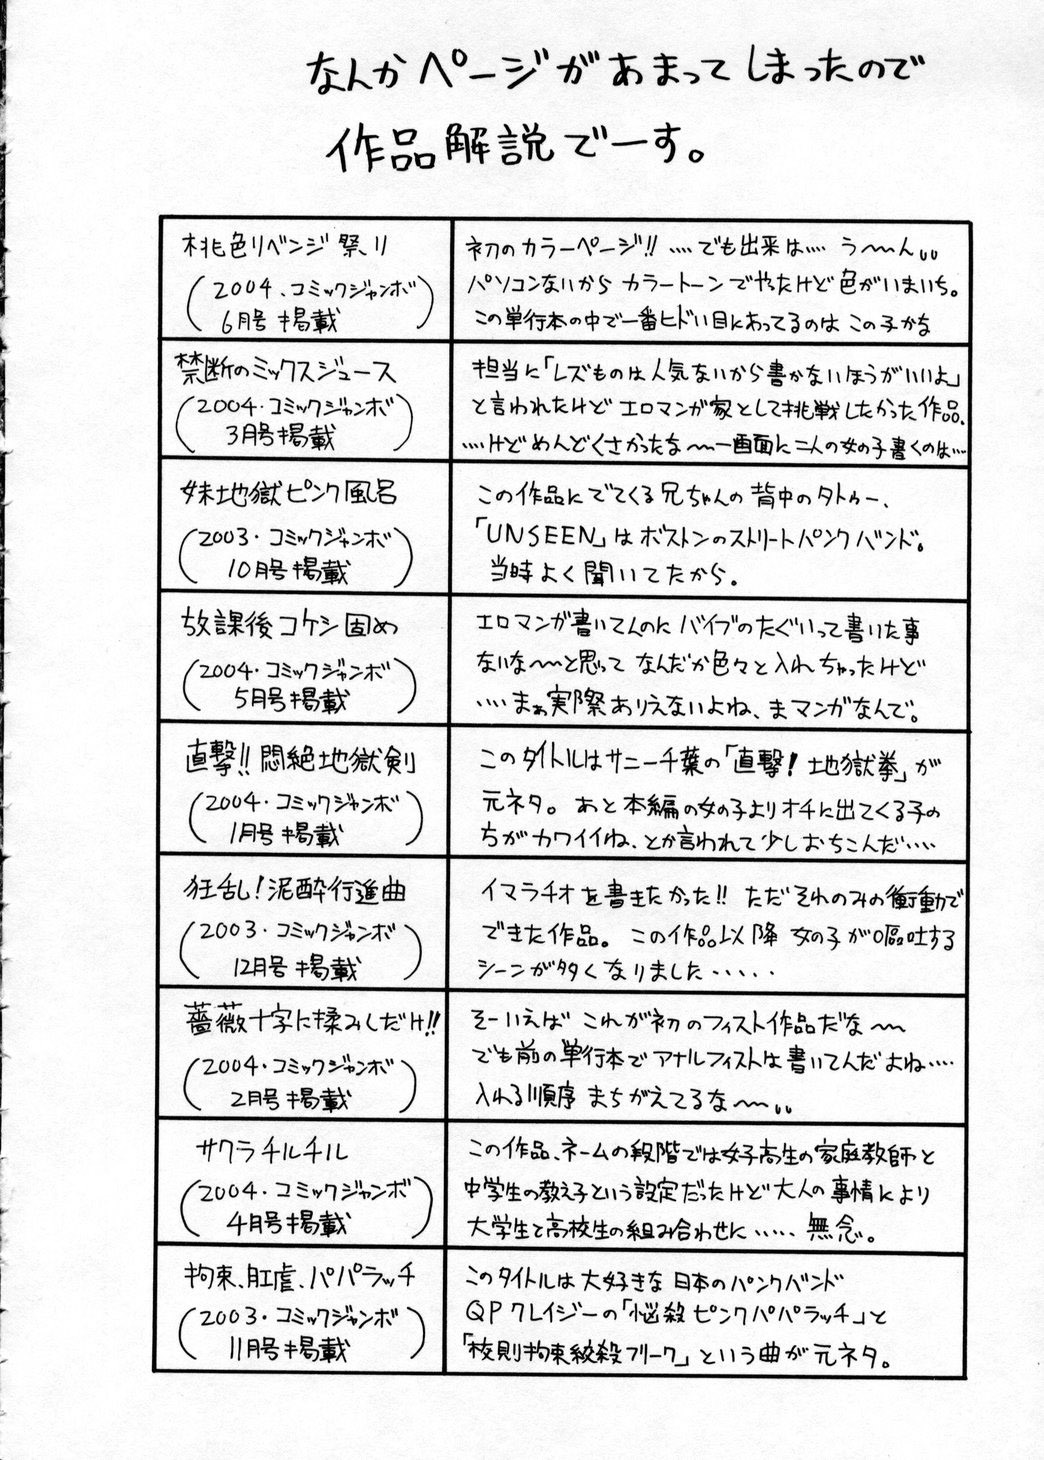 なんかページがあまってしまったので
作品解説でーす。
桃色リベンジ祭り
(2004.コミックジャンボ
6月号掲載)
初のカラーページ!! ‥‥でも出来は‥‥ う〜〜ん。。
パソコンないから カラートーンでやったけど色がいまいち。
この単行本の中で一番ヒドい目にあってるのは この子かな
禁断のミックスジュース
(2004・コミックジャンボ
3月号掲載)
担当に「レズものは人気ないから書かないほうがいいよ」
と言われたけど エロマンが家として挑戦したかった作品.
‥‥けどめんどくさかったな〜〜一画面に二人の女の子書くのは‥‥
妹地獄ピンク風呂
(2003・コミックジャンボ
10月号掲載)
この作品にでてくる兄ちゃんの背中のタトゥー、
「UNSEEN」はボストンのストリートパンクバンド。
当時よく聞いてたから.
放課後コケシ固め
(2004・コミックジャンボ
5月号掲載)
エロマンが書いてんのに バイブのたぐいって書いた事
ないな〜〜と思って なんだか色々と入れちゃったけど
‥‥まぁ実際ありえないよね、まマンガなんで。
直撃!!悶絶地獄剣
(2004・コミックジャンボ
1月号掲載)
このタイトルはサニー千葉の「直撃!地獄拳」が
元ネタ。あと本編の女の子よりオチに出てくる子の
ちがカワイイね、とか言われて少しおちこんだ‥‥
狂乱!泥酔行進曲
(2003・コミックジャンボ
12月号掲載)
イマラチオを書きたかった!! ただそれのみの衝動で
できた作品。この作品以降 女の子が嘔吐する
シーンが多くなりました‥‥‥
薔薇十字に揉みしだけ!!
(2004・コミックジャンボ
2月号掲載)
そーいえば これが初のフィスト作品だな〜〜
でも前の単行本でアナルフィストは書いてんだよね‥‥
入れる順序まちがえてるな〜〜。。
サクラチルチル
(2004・コミックジャンボ
4月号掲載)
この作品、ネームの段階では女子高生の家庭教師と
中学生の教え子という設定だったけど大人の事情により
大学生と高校生の組み合わせに‥‥‥無念。
拘束、肛虐、パパラッチ
(2003・コミックジャンボ
11月号掲載)
このタイトルは大好きな日本のパンクバンド
QPクレイジーの「悩殺ピンクパパラッチ」と
「校則拘束絞殺フリーク」という曲が元ネタ。